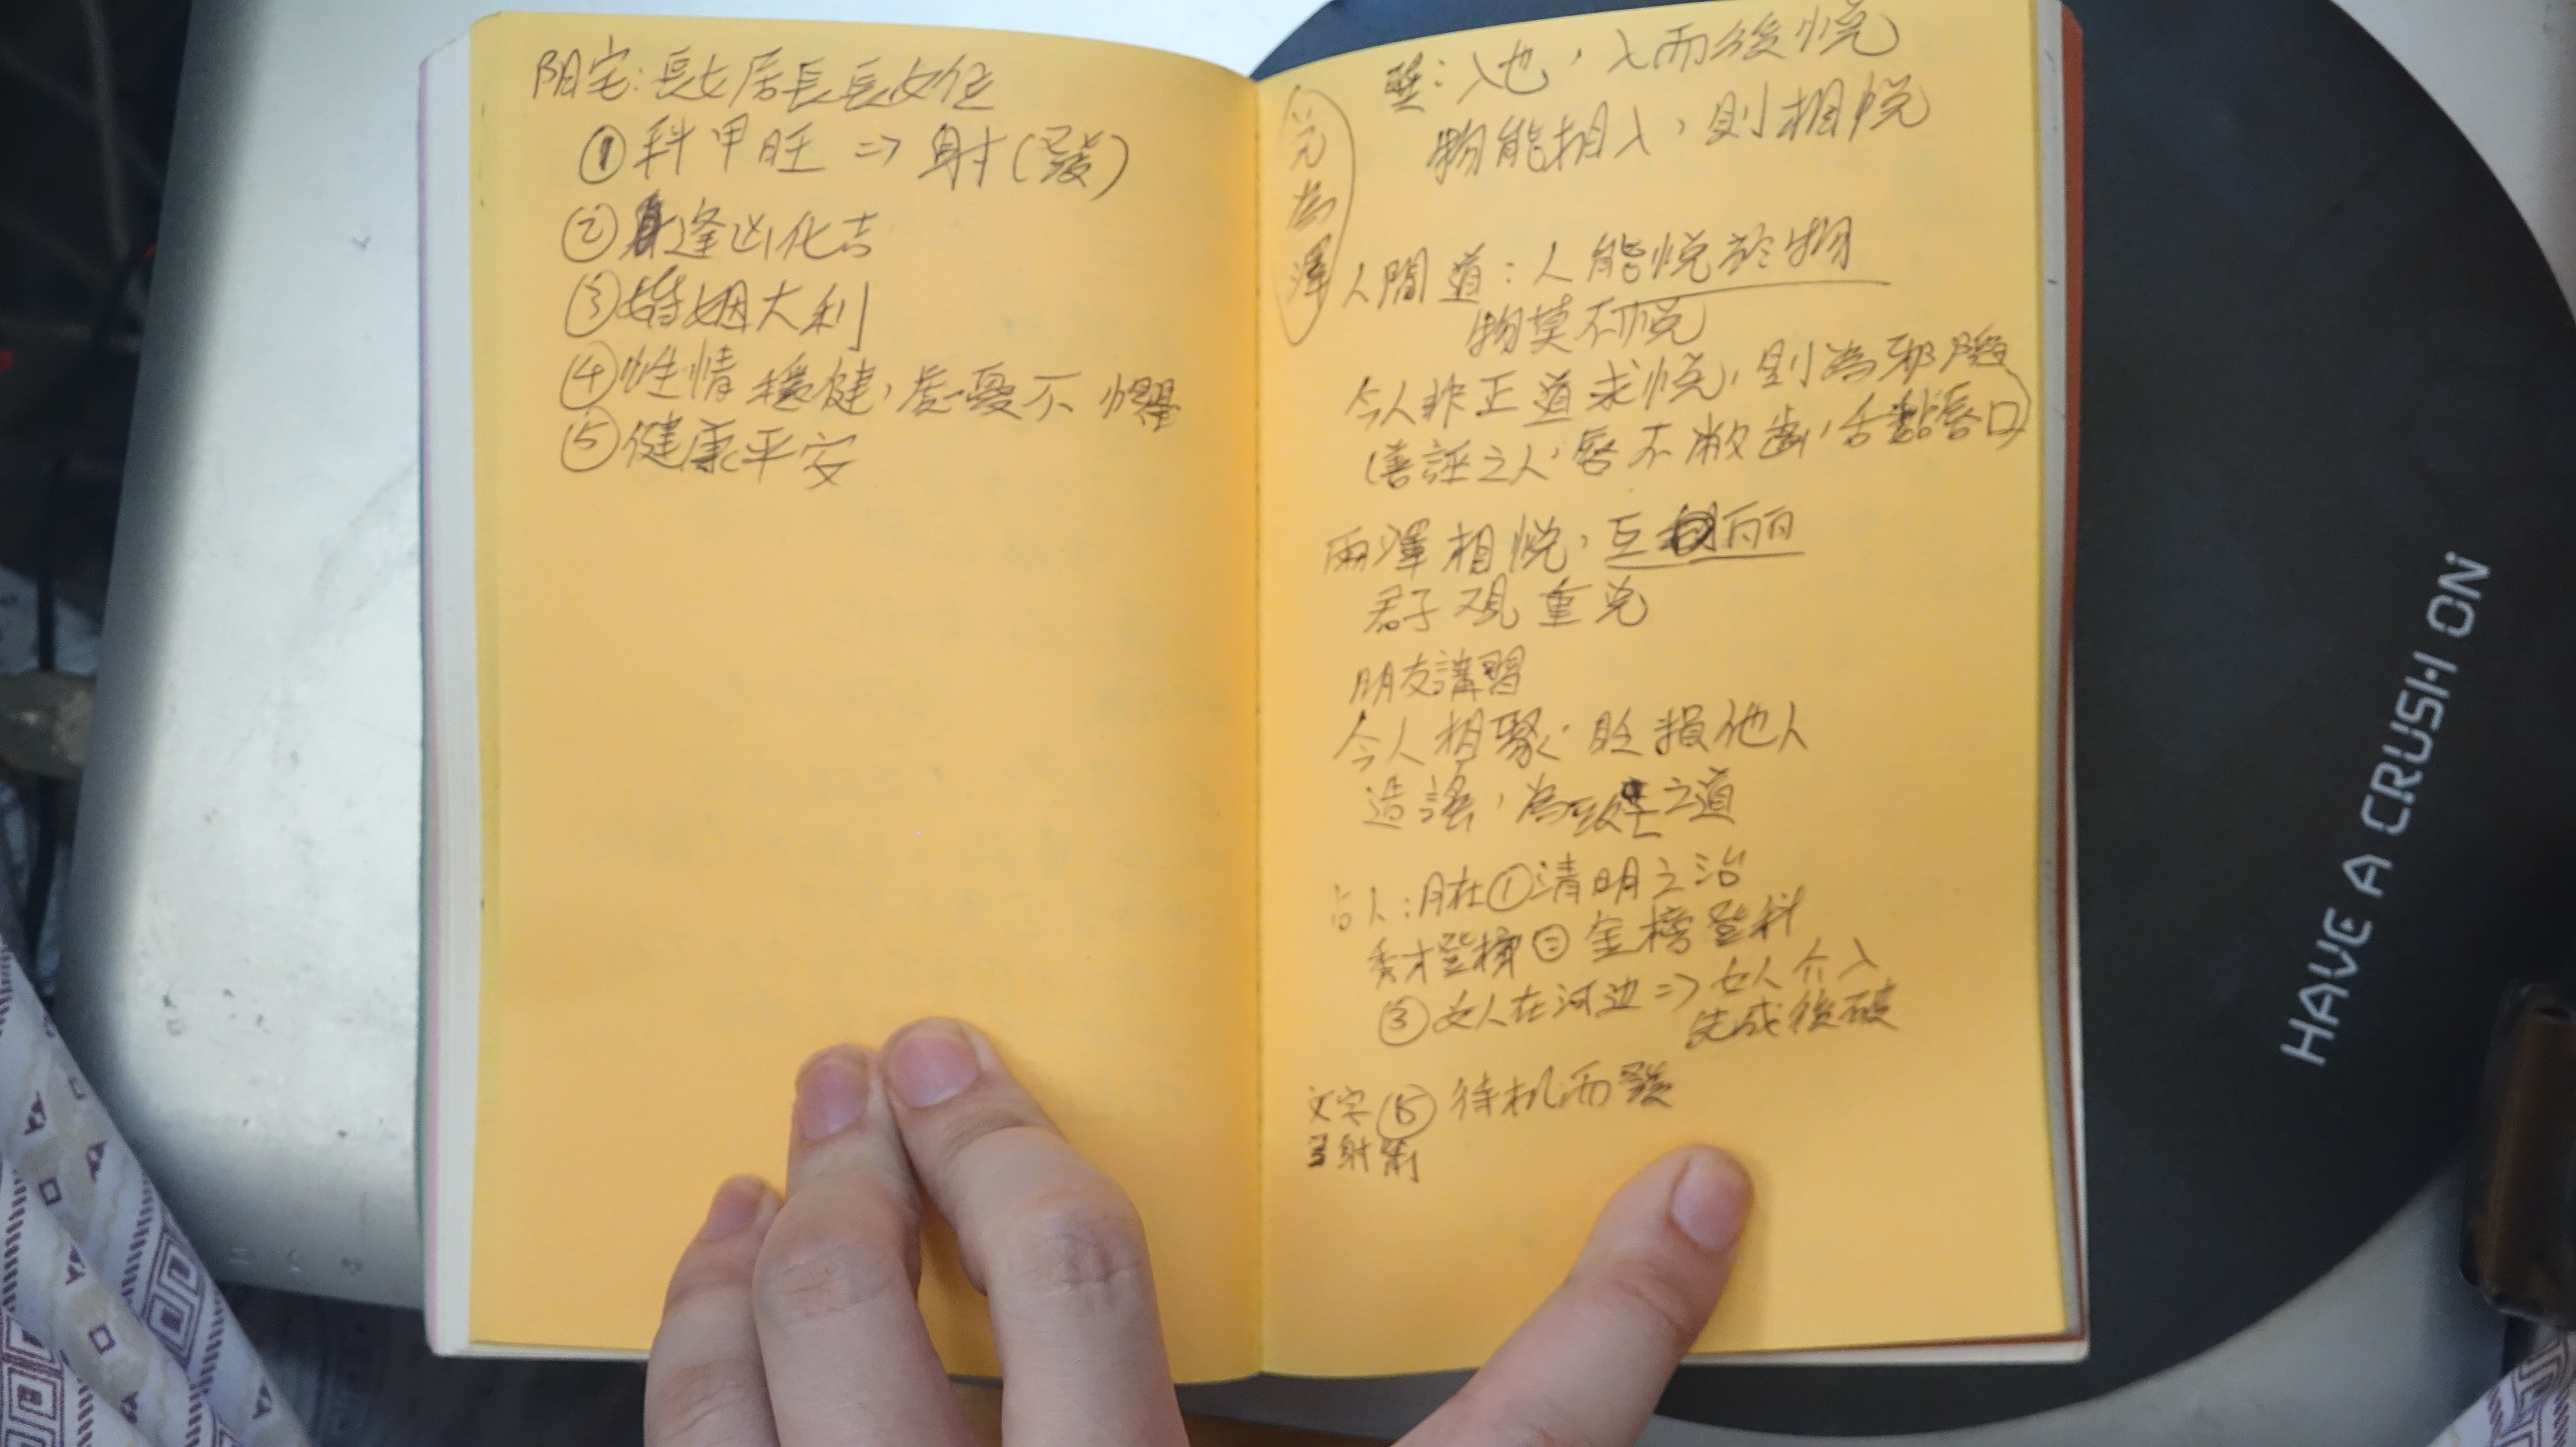 阴宅:長女居長長女位
①科甲旺 => 射(發)
②逢凶化吉
③婚姻大利
④性情穩健,處憂不懼
⑤健康平安
兌為澤
巽:入也,入而後悅
物能相入,則相悅
人間道:人能悅於物
物莫不悅
今人非正道求悅,則為邪陷
(善誣之人:唇不敝齒,舌黏唇口)
兩澤相悅,互丽
君子观重兌
朋友講習
今人相聚:貶損他人
造謠,為之道
占人:月在①清明之治
秀才登梯②金榜登科
③女人在河边 => 女人介入
先成後破
文字⑤待机而發
射術
HAVE A CRUSH ON